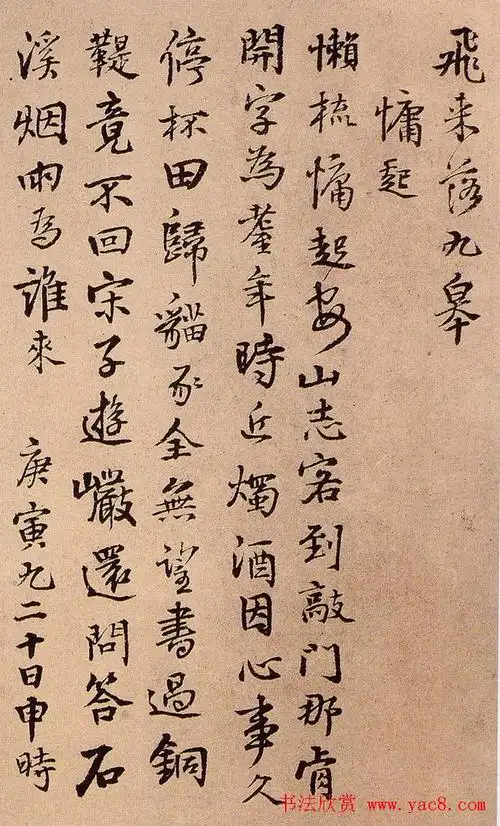 飛来落九皋
慵起
懶梳慵起安山志客到敲門那肯
開字為耋年時近燭酒因心事久
停杯田歸貓豕全無望書過銅
鞮竟不回宋子遊巖還問答石
溪烟雨為誰來
庚寅九二十日申時
书法欣赏 www.yac8.com